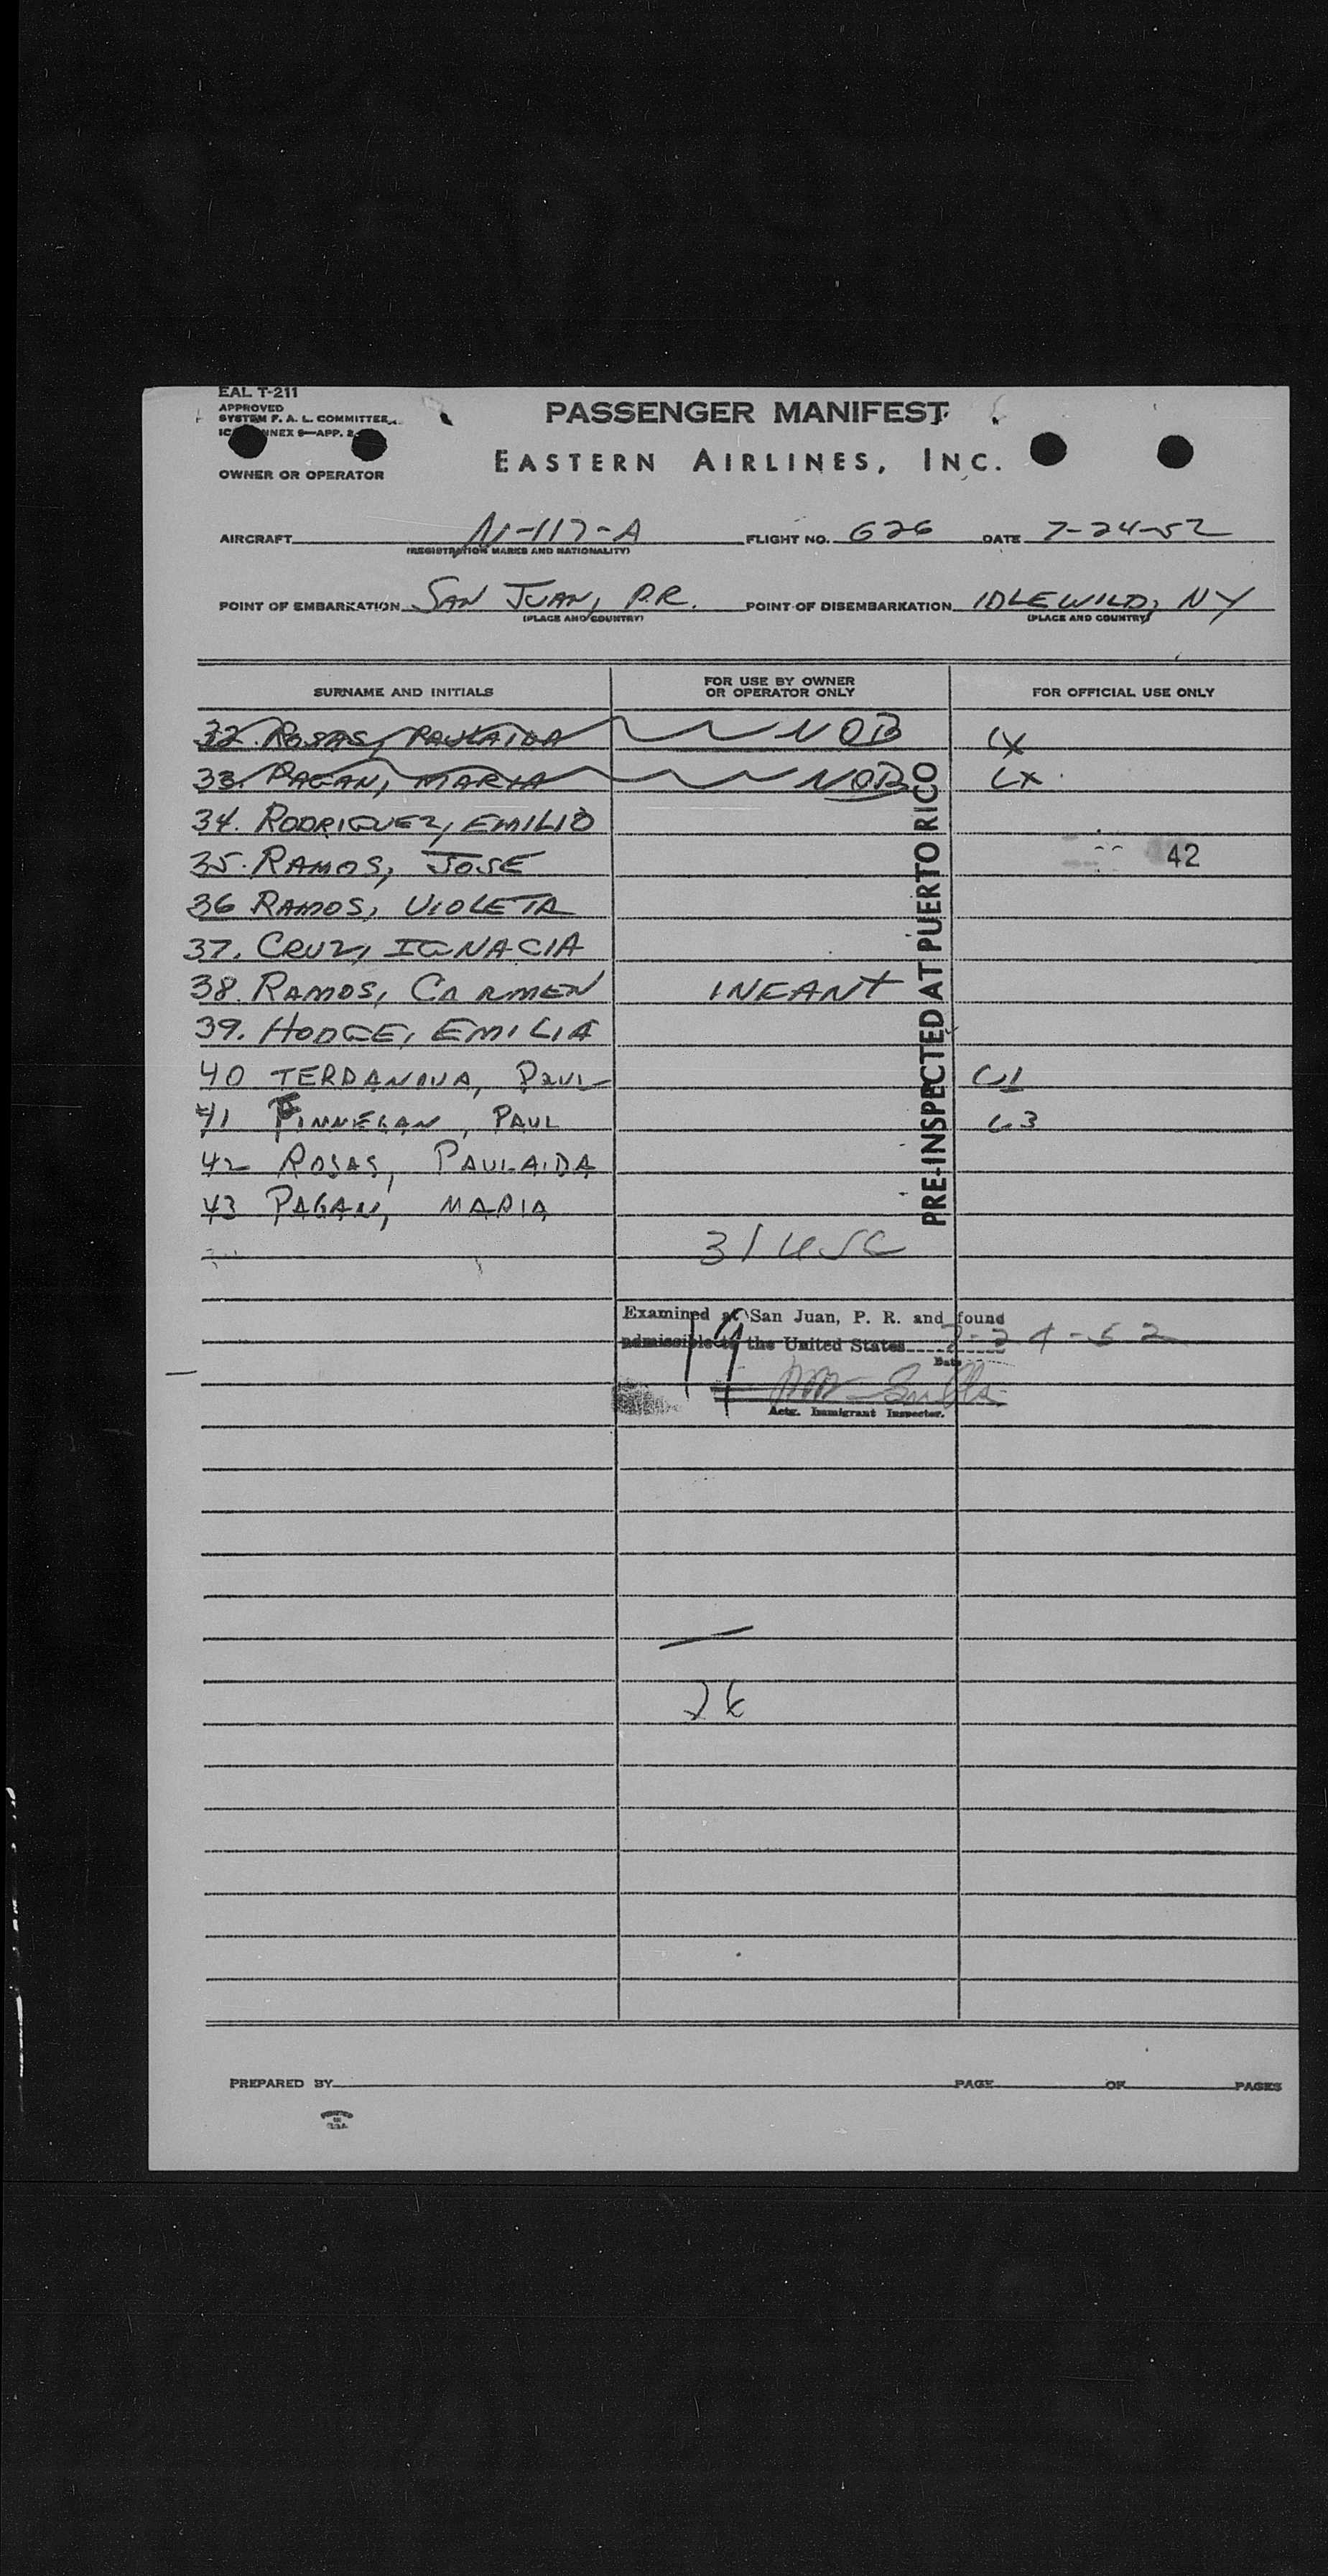 EAL T-211
APPROVED
SYSTEM F. A. L. COMMITTEE
NNEX 9—APP. 2
PASSENGER MANIFEST
EASTERN AIRLINES, INC.
OWNER OR OPERATOR
AIRCRAFT N-117-A FLIGHT NO. 626 DATE 7-24-52
(REGISTRATION MARKS AND NATIONALITY)
POINT OF EMBARKATION SAN JUAN, P.R. POINT OF DISEMBARKATION IDLEWILD, NY
(PLACE AND COUNTRY) (PLACE AND COUNTRY)
SURNAME AND INITIALS FOR USE BY OWNER OR OPERATOR ONLY FOR OFFICIAL USE ONLY
32. ROSAS, PAULAIDA NOB CX
33. PAGAN, MARIA NOB CX
34. RODRIGUEZ, EMILIO
35. RAMOS, JOSE 42
36 RAMOS, VIOLETA
37. CRUZ, IGNACIA
38. RAMOS, CARMEN INFANT
39. HODGE, EMILIA
40 TERDANOVA, PAUL
41 FINNEGAN, PAUL
42 ROSAS, PAULAIDA
43 PAGAN, MARIA
PRE-INSPECTED AT PUERTO RICO
31 USC
Examined at San Juan, P. R. and found
admissible to the United States 7-24-52
Date
Actg. Immigrant Inspector.
PREPARED BY PAGE OF PAGES
PRINTED
IN
U.S.A.